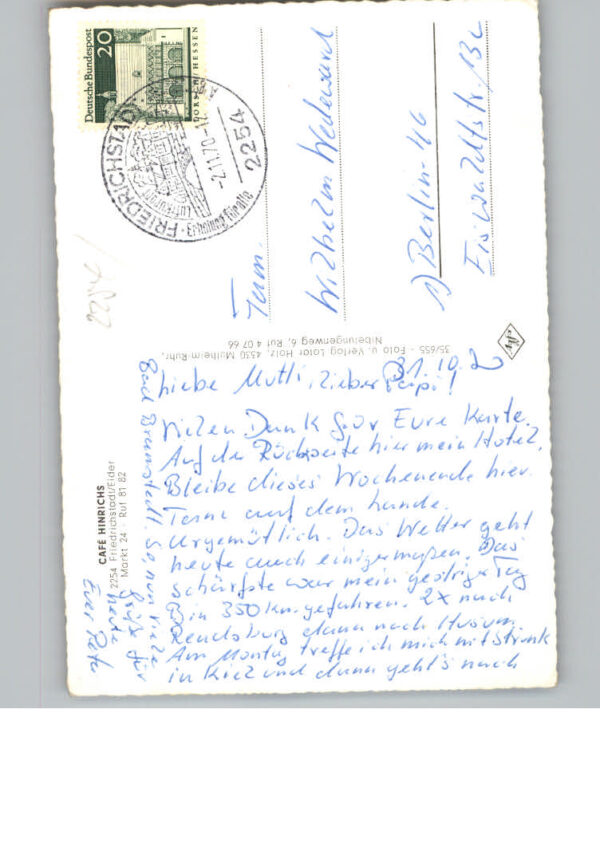 Deutsche Bundespost
20
LORSCH / HESSEN
FRIEDRICHSTADT
2254
-2.11.70-12
Luftkurort
Erholung für alle
Fam.
Wilhelm
1) Berlin-46
Eiswaldtstr. 13c
35/655 - Foto u. Verlag Lotar Holz, 4330 Mülheim-Ruhr,
Nibelungenweg 6, Ruf 4 07 66
31.10.70
Liebe Mutti, lieber Papi!
Vielen Dank für Eure Karte.
Auf der Rückseite hier mein Hotel.
Bleibe dieses Wochenende hier.
Ferne auf dem Lande.
Urgemütlich. Das Wetter geht
heute auch einigermaßen. Das
schärfste war mein gestriger Tag
Bin 350 Km. gefahren. 2x nach
Rendsburg dann nach Husum.
Am Montag treffe ich mich mit
in Kiel und dann geht's nach
Bad Bramstedt. So, nun viele
Grüße für
heute
Euer
CAFÉ HINRICHS
2254 Friedrichstadt/Eider
Markt 24 - Ruf 81 82